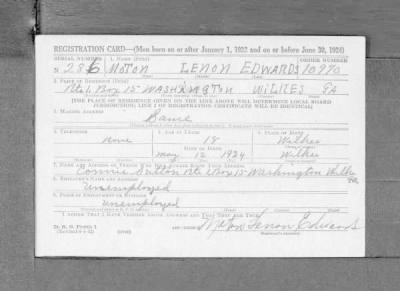 REGISTRATION CARD—(Men born on or after January 1, 1922 and on or before June 30, 1924)
SERIAL NUMBER 1. NAME (Print) ORDER NUMBER
N 286 MOTON LENON EDWARDS 10970
2. PLACE OF RESIDENCE (Print)
Rte 1. Box 15 WASHINGTON WILKES GA
[THE PLACE OF RESIDENCE GIVEN ON THE LINE ABOVE WILL DETERMINE LOCAL BOARD
JURISDICTION; LINE 2 OF REGISTRATION CERTIFICATE WILL BE IDENTICAL]
3. MAILING ADDRESS
Same
4. TELEPHONE 5. AGE IN YEARS 6. PLACE OF BIRTH
None 18 Wilkes
DATE OF BIRTH
may 12 1924 Wilkes
7. NAME AND ADDRESS OF PERSON WHO WILL ALWAYS KNOW YOUR ADDRESS
Connie Rte 1 Box 15 Washington Wilkes
8. EMPLOYER'S NAME AND ADDRESS
Unemployed
9. PLACE OF EMPLOYMENT OR BUSINESS
Unemployed
I AFFIRM THAT I HAVE VERIFIED ABOVE ANSWERS AND THAT THEY ARE TRUE.
D. S. S. Form 1
Moton Lenon Edwards